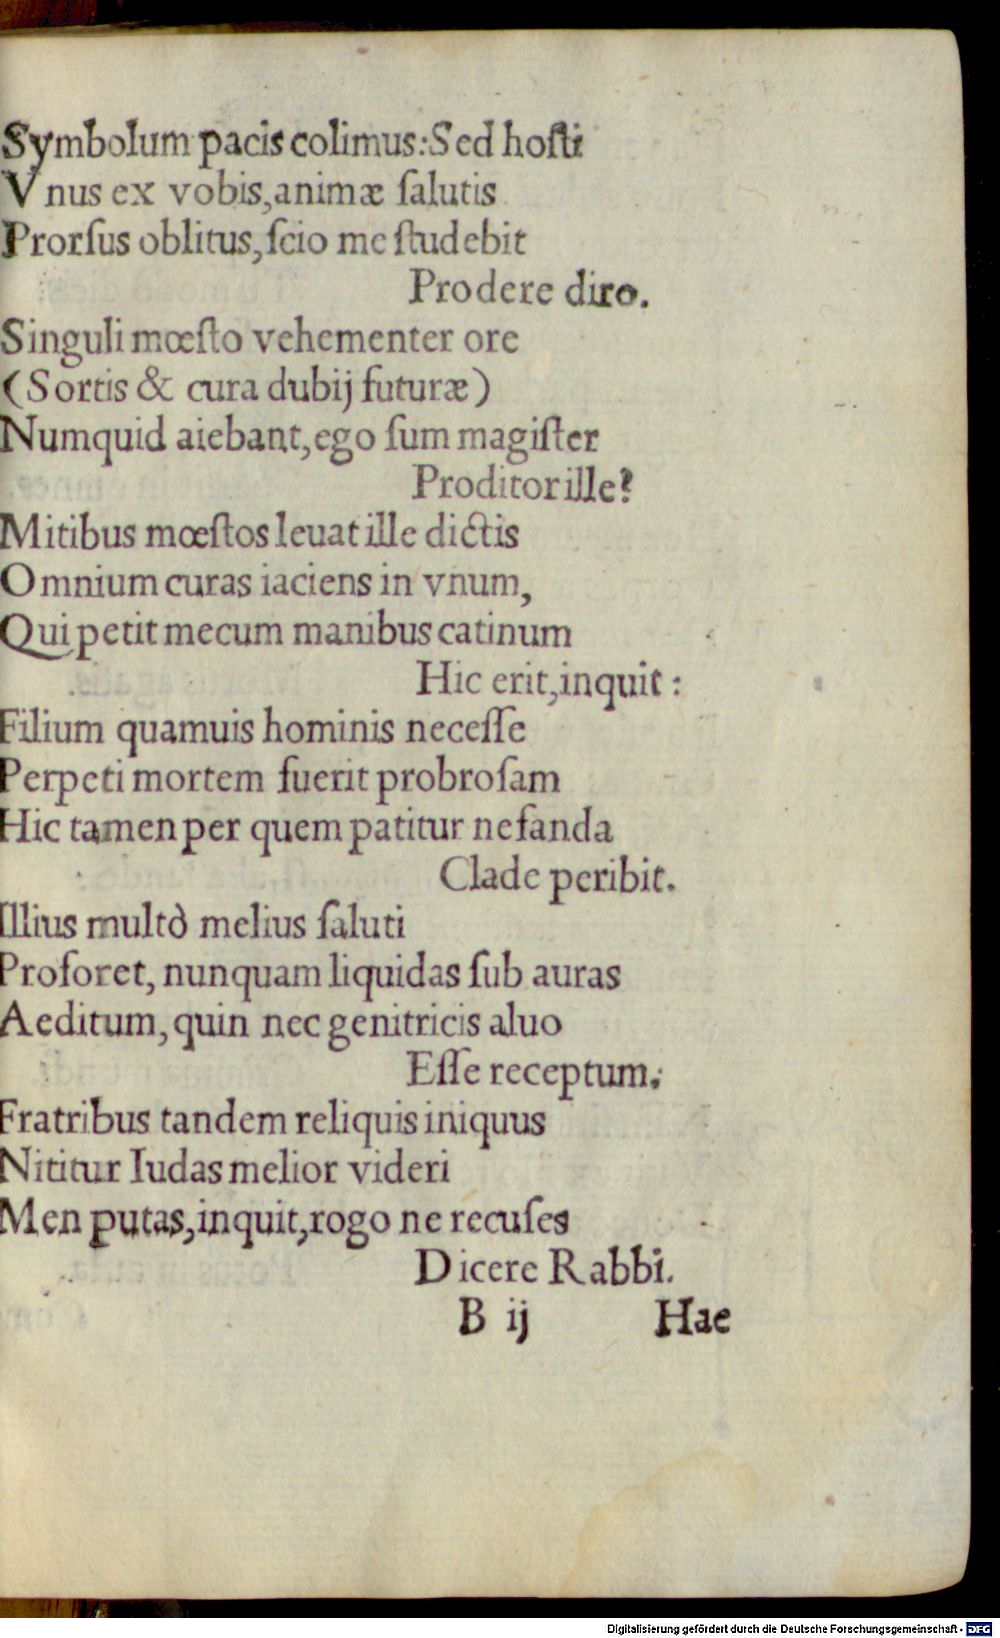 Symbolum pacis colimus: Sed hoſti
Vnus ex vobis, animæ ſalutis
Prorſus oblitus, ſcio me ſtudebit
Prodere diro.
Singuli mœſto vehementer ore
(Sortis & cura dubij futuræ)
Numquid aiebant, ego ſum magiſter
Proditor ille?
Mitibus mœſtos leuat ille dictis
Omnium curas iaciens in vnum,
Qui petit mecum manibus catinum
Hic erit, inquit:
Filium quamuis hominis neceſſe
Perpeti mortem fuerit probroſam
Hic tamen per quem patitur nefanda
Clade peribit.
Illius multò melius ſaluti
Proforet, nunquam liquidas ſub auras
Aeditum, quin nec genitricis aluo
Eſſe receptum.
Fratribus tandem reliquis iniquus
Nititur Iudas melior videri
Men putas, inquit, rogo ne recuſes
Dicere Rabbi.
B ij Hae
Digitalisierung gefördert durch die Deutsche Forschungsgemeinschaft - DFG